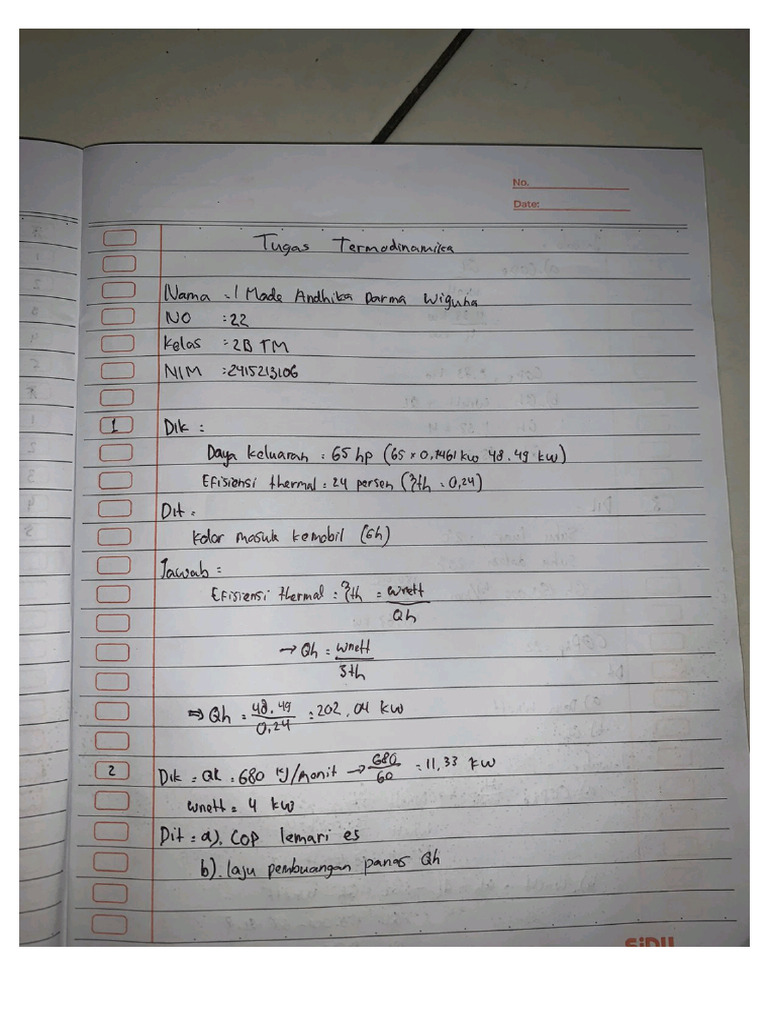 No.
Date:
Tugas Termodinamika
Nama : I Made Andhika Darma Wiguna
NO : 22
Kelas : 2B TM
NIM : 2415213106
1 Dik :
Daya keluaran : 65 hp (65 x 0,7461 kw 48.49 kw)
Efisiensi thermal : 24 persen (ηth = 0,24)
Dit :
Kalor masuk kemobil (Gh)
Jawab :
Efisiensi thermal : ηth = wnett / Qh
→ Qh = wnett / ηth
⇒ Qh = 48.49 / 0,24 = 202,04 kw
2 Dik = QL = 680 kJ/menit → 680 / 60 = 11,33 kw
wnett = 4 kw
Dit = a). COP lemari es
b). laju pembuangan panas Qh
SiDU